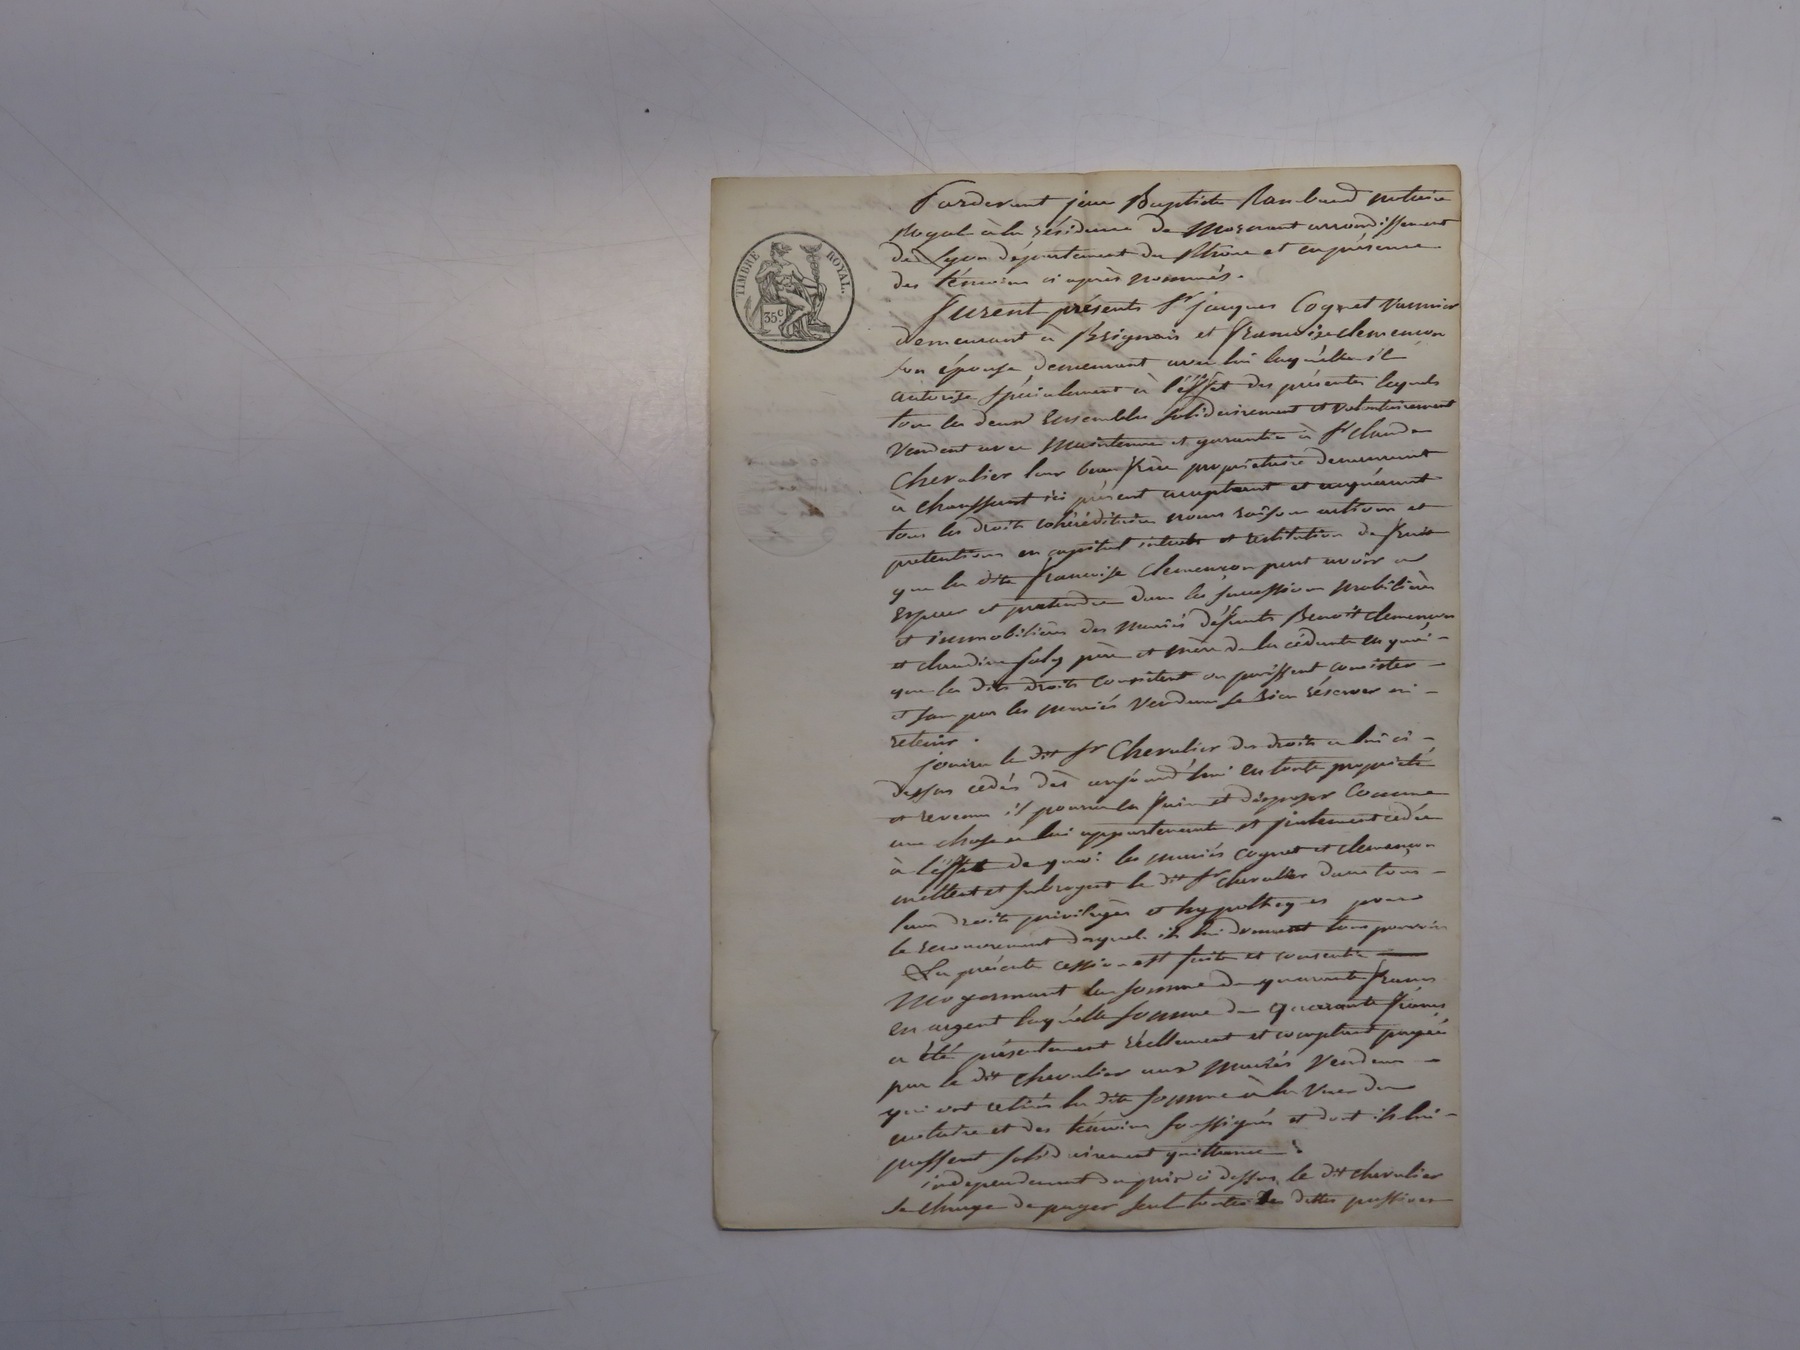 TIMBRE ROYAL.
35c.
Pardevant jean Baptiste Rambaud notaire
Royal à la résidence de Mornant arrondissement
de Lyon département du Rhône et en présence
des témoins ci après nommés.
furent présents Sr jacques Cognet Vannier
demeurant à Brignais et françoise clemençon
son épouse demeurant avec lui laquelle il
autorise spécialement à l'éffet des présentes lequels
tous les deux Ensembles solidairement et volontairement
vendent avec Maintenue et garantie à Sr claude
Chevalier leur beau frère propriétaire demeurant
à chaussant ici présent acceptant et acquérant
tous les droits cohéréditaires noms raisons actions et
pretentions en capital intérets et restitution de fruit
que la dite françoise clemençon peut avoir a
Esperer et pretendre dans les successions mobilières
et immobilières des mariés défunts Benoît clemençon
et claudine soly père et mère de la cédante en quoi -
que les dits droits consistent ou puissent consister -
et sans par les mariés Vendeurs se Rien réserver ni -
retenir.
jouira le dit Sr Chevalier des droits a lui ci -
dessus cedés dès aujourd'hui en toute propriété
et revenu il pourra en faire et disposer Comme
une chose a lui appartenante et justement cédée
à l'éffet de quoi les mariés cognet et clemençon
mettent et subrogent le dit Sr Chevalier dans tous -
leurs droits privilèges et hypothèques pour
le recouvrement desquels ils lui donnent tous pouvoirs
La présente cession est faite et consentie
Moyennant la somme de quarante francs
en argent laquelle somme de quarante francs
a été présentement réellement et comptant payée
par le dit chevalier aux Mariés Vendeurs -
qui ont retirés la dite somme à la Vue du
notaire et des témoins soussignés et dont ils lui -
passent solidairement quittance.
independament du prix ci dessus le dit chevalier
se charge de payer seul toutes les dettes passives